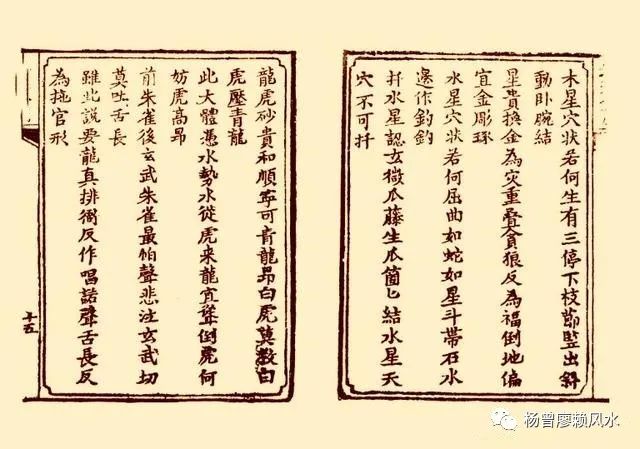 木星穴状若何生有三停下枝節監出斜
動卧腕結
星貴换金為灾重疊貪狼反為福倒地偏
宜金彫琢
水星穴状若何屈曲如蛇如星斗帶石水
邊作釣釣
扦水星認玄微瓜藤生瓜箇匕結水星天
穴不可扦
龍虎砂貴和順寧可青龍昂白虎莫教白
虎壓青龍
此大體憑水勢水從虎来龍宜聳倒虎何
妨虎高昂
前朱雀後玄武朱雀最怕聲悲泣玄武切
莫吐舌長
雖此説要龍真排衙反作唱諾聲舌長反
為拖官形
十五
杨曾廖赖风水